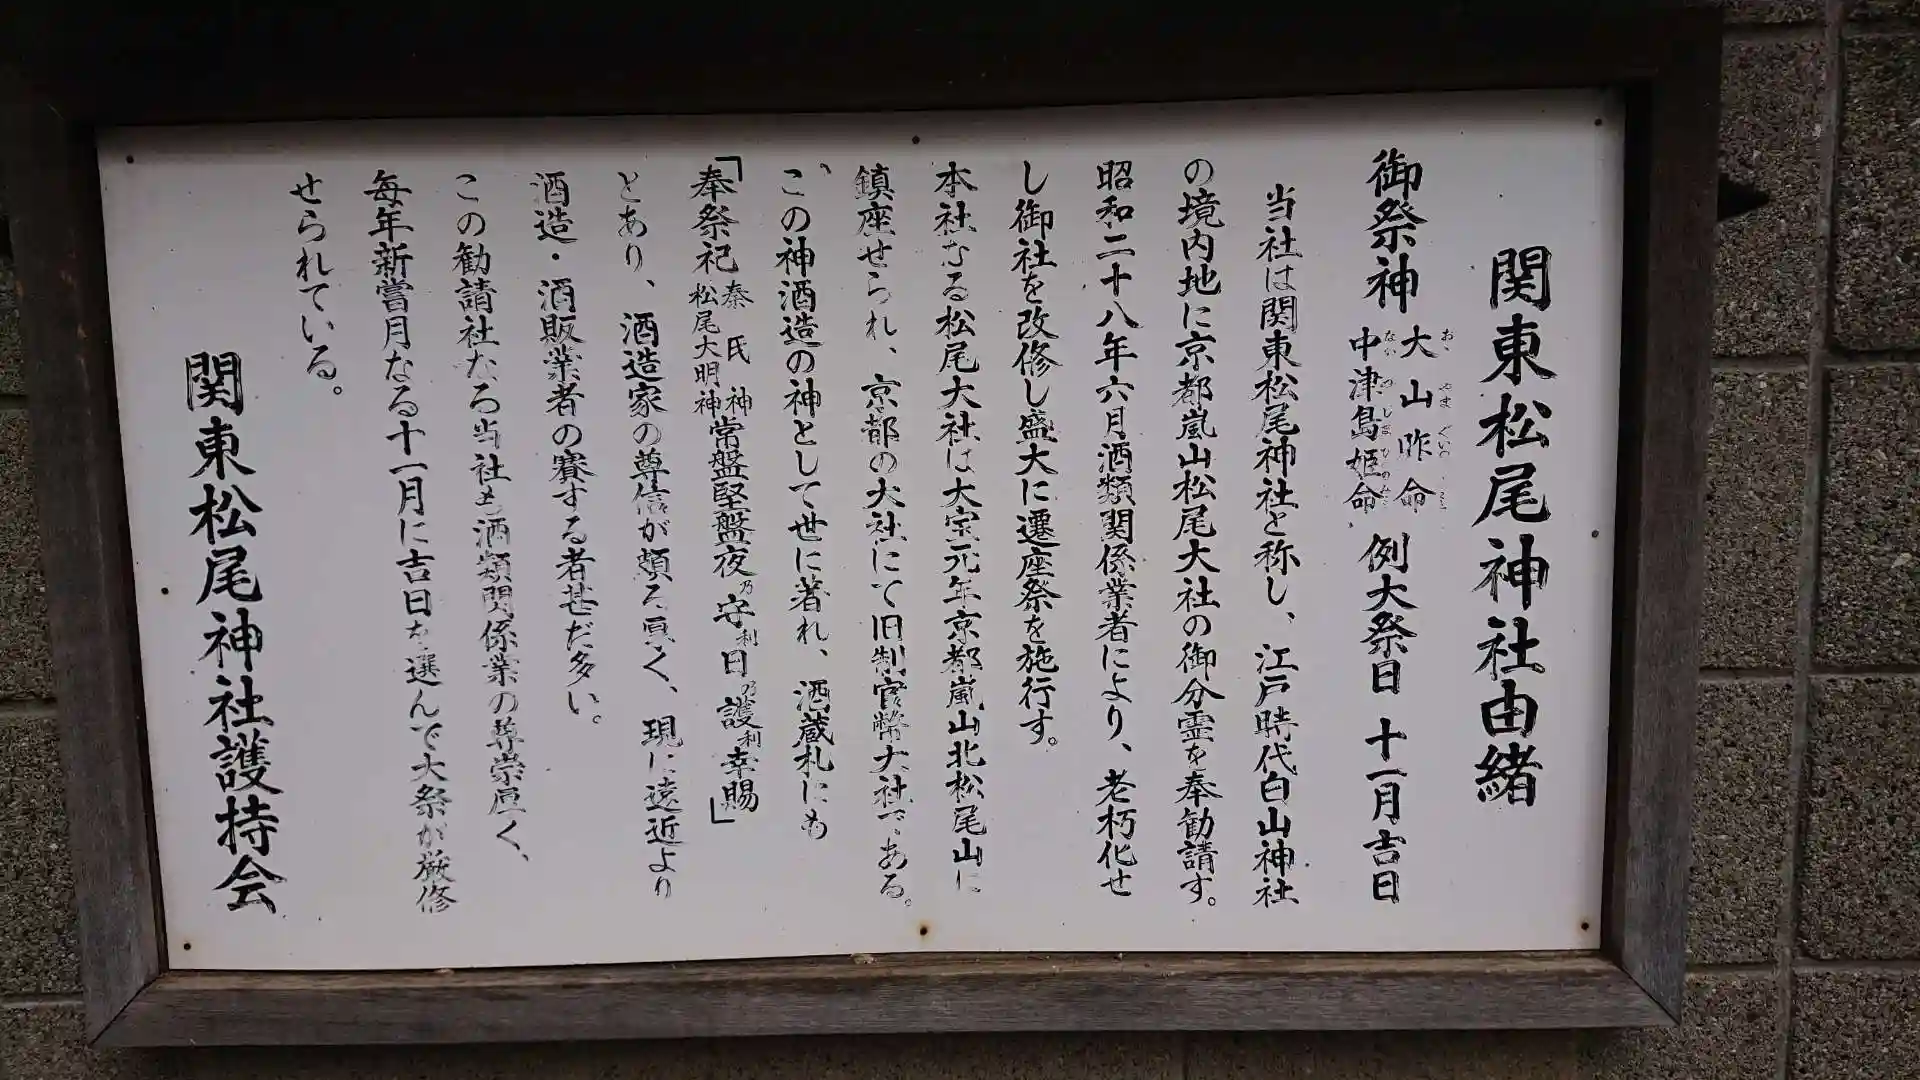 関東松尾神社由緒
御祭神 大山咋命 中津島姫命 例大祭日 十一月吉日
当社は関東松尾神社と称し、江戸時代白山神社
の境内地に京都嵐山松尾大社の御分霊を奉勧請す。
昭和二十八年六月酒類関係業者により、老朽化せ
し御社を改修し盛大に遷座祭を施行す。
本社なる松尾大社は大宝元年京都嵐山北松尾山に
鎮座せられ、京都の大社にて旧制官幣大社である。
この神酒造の神として世に著れ、酒蔵札にも
「奉祭祀 秦氏神 松尾大明神 常盤堅盤夜乃守利日乃護利幸賜」
とあり、酒造家の尊信が頗る厚く、現に遠近より
酒造・酒販業者の賽する者甚だ多い。
この勧請社なる当社も酒類関係業の尊崇厚く、
毎年新嘗月なる十一月に吉日を選んで大祭が厳修
せられている。
関東松尾神社護持会